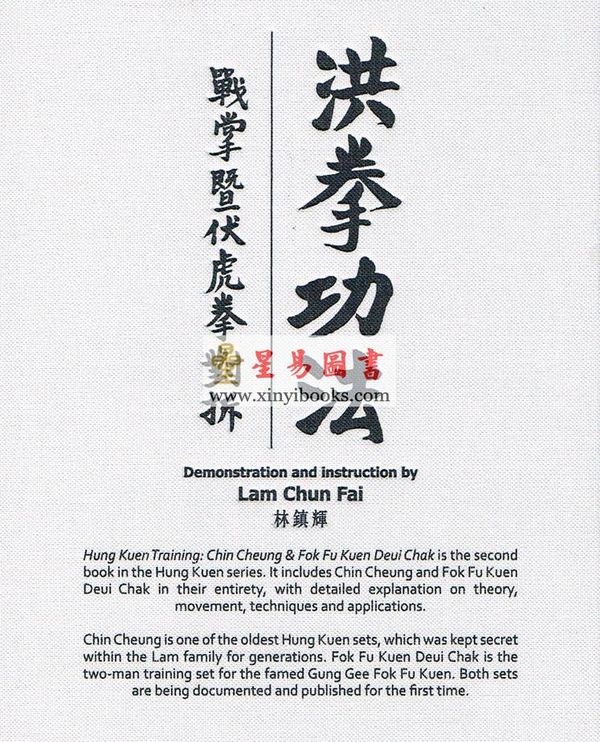 洪拳功法
戰掌暨伏虎拳對拆
星易圖書
www.xinyibooks.com
Demonstration and instruction by
Lam Chun Fai
林鎮輝
Hung Kuen Training: Chin Cheung & Fok Fu Kuen Deui Chak is the second
book in the Hung Kuen series. It includes Chin Cheung and Fok Fu Kuen
Deui Chak in their entirety, with detailed explanation on theory,
movement, techniques and applications.
Chin Cheung is one of the oldest Hung Kuen sets, which was kept secret
within the Lam family for generations. Fok Fu Kuen Deui Chak is the
two-man training set for the famed Gung Gee Fok Fu Kuen. Both sets
are being documented and published for the first time.